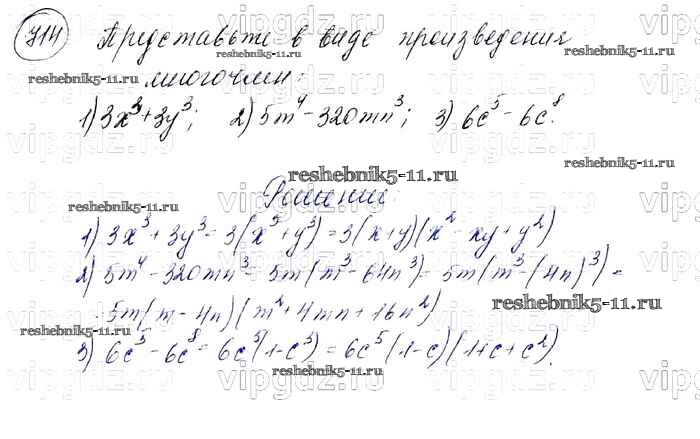 714 Представьте в виде произведения
многочлен:
1) 3x³+3y³; 2) 5m⁴-320mn³; 3) 6c⁵-6c⁸.
Решение:
1) 3x³+3y³=3(x³+y³)=3(x+y)(x²-xy+y²)
2) 5m⁴-320mn³=5m(m³-64n³)=5m(m³-(4n)³)=
=5m(m-4n)(m²+4mn+16n²)
3) 6c⁵-6c⁸=6c⁵(1-c³)=6c⁵(1-c)(1+c+c²).
reshebnik5-11.ru
reshebnik5-11.ru
reshebnik5-11.ru
reshebnik5-11.ru
reshebnik5-11.ru
reshebnik5-11.ru
reshebnik5-11.ru
reshebnik5-11.ru
reshebnik5-11.ru
vipgdz.com